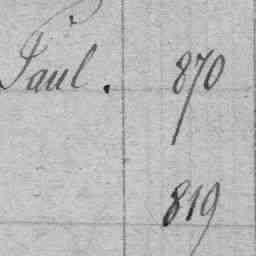 Paul. 870
819